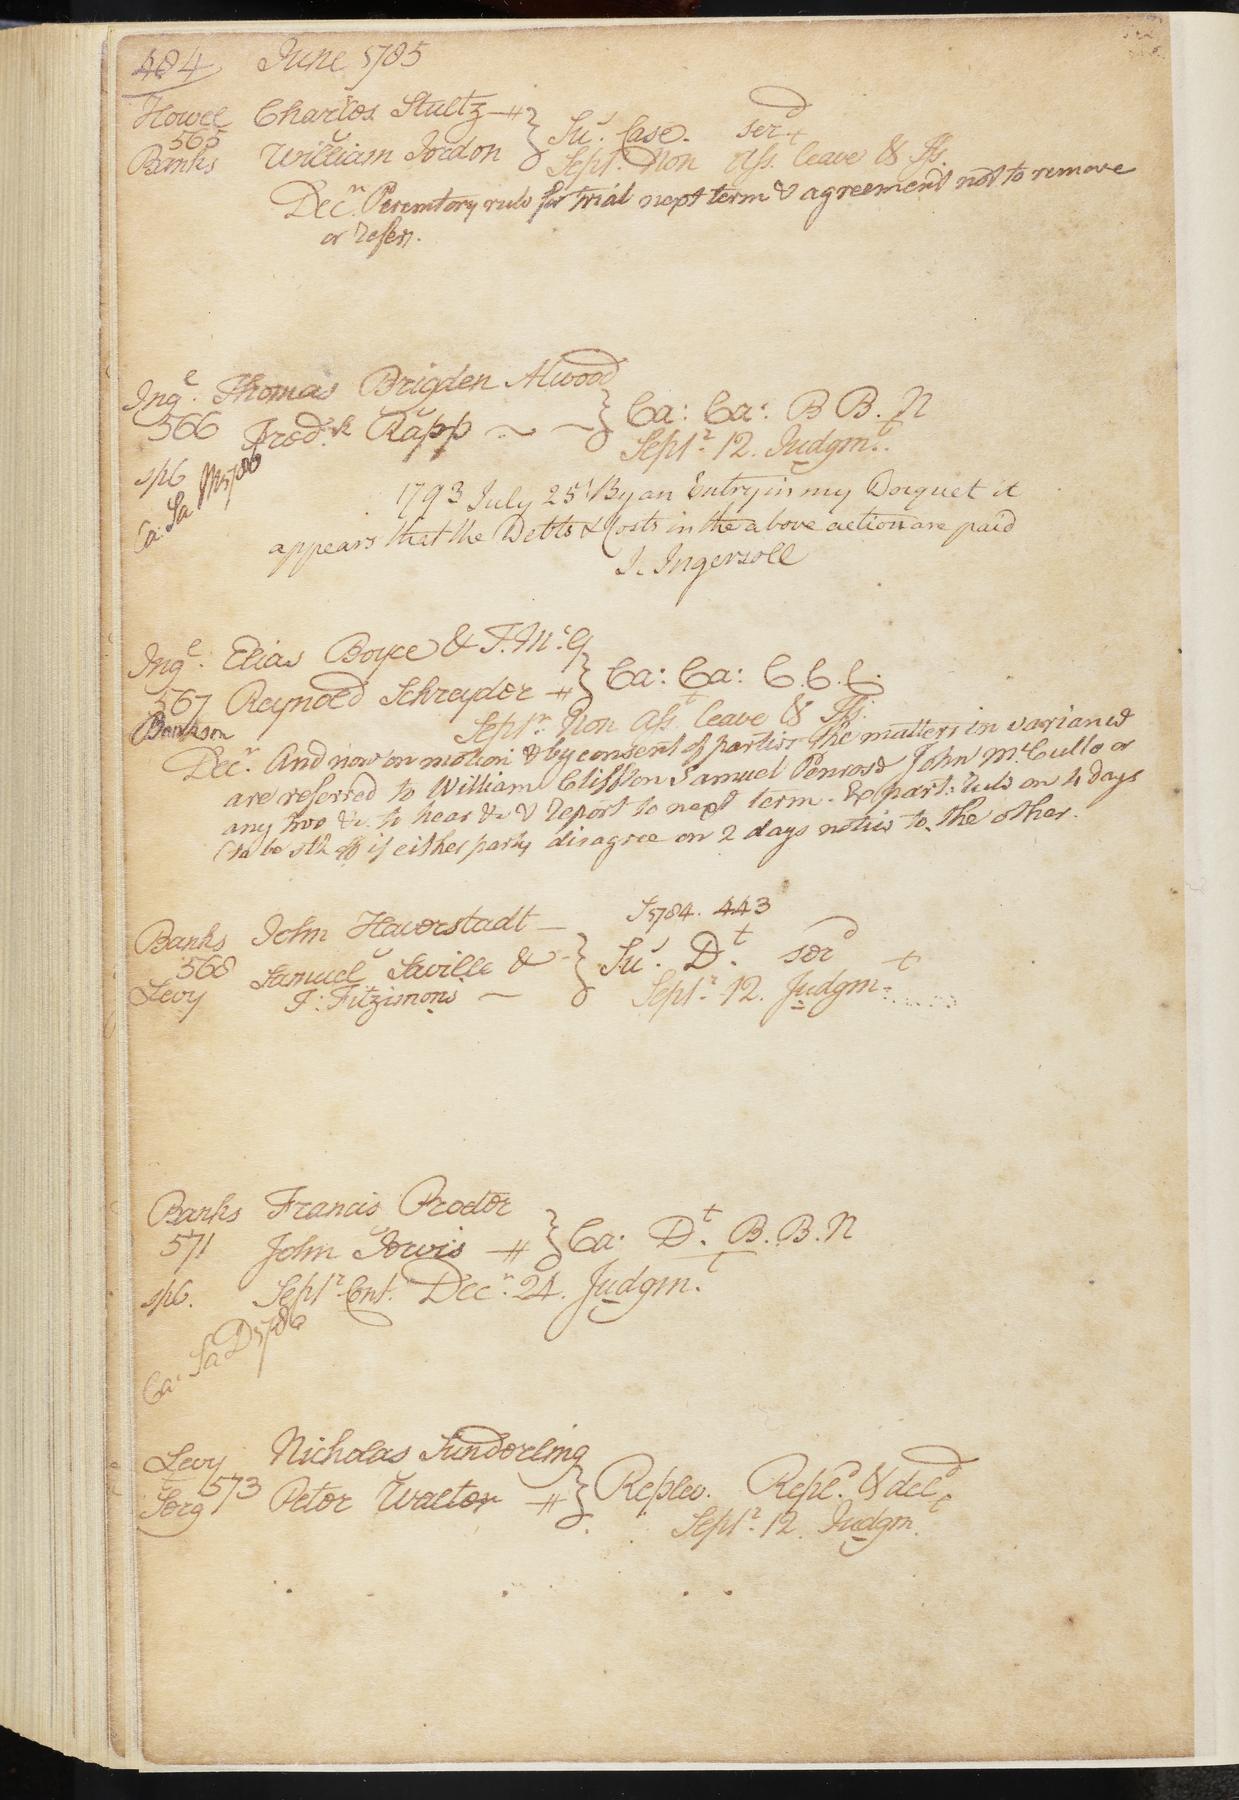 484 June 1785
Howel Charles Stultz
565
Banks William Jordon } Su. Case. serd
Sept. Non Ass. leave & Iss.
Decr. Peremtory rule for trial next term & agreement not to remove
or refer.
Inge. Thomas Brigden Atwood
566 Fredk. Rapp } Ca: Ca: B B. N
Septr. 12. Judgmt.
sp6
Ca: Sa M 1786
1793 July 25t By an Entry in my Docquet it
appears that the Debts & Costs in the above action are paid
J. Ingersoll
Inge. Elias Boyce & T. McG
567 Raynold Schreyder } Ca: Ca: C. C. C.
Bankson Septr. Non Asst. leave & Iss.
Decr. And now on motion & by consent of parties the matters in variance
are referred to William Cliffton Samuel Penrose John McCullo or
any two &c. to hear &c & report to next term. Ex part: rule on 4 days
to be stk off if either party disagree on 2 days notice to the other.
S 1784. 443
Banks John Haverstadt
568
Levy Samuel Saville & } Su. Dt. serd
F: Fitzimons Septr. 12. Judgm.
Banks Francis Proctor
571 John Jervis } Ca: Dt. B. B. N
sp6. Septr Cont. Decr. 24. Judgmt.
Ca: Sa D 1786
Levy Nicholas Sunderling
573
Serg Peter Walter } Replev. Repld. & deld
Septr. 12. Judgmt.